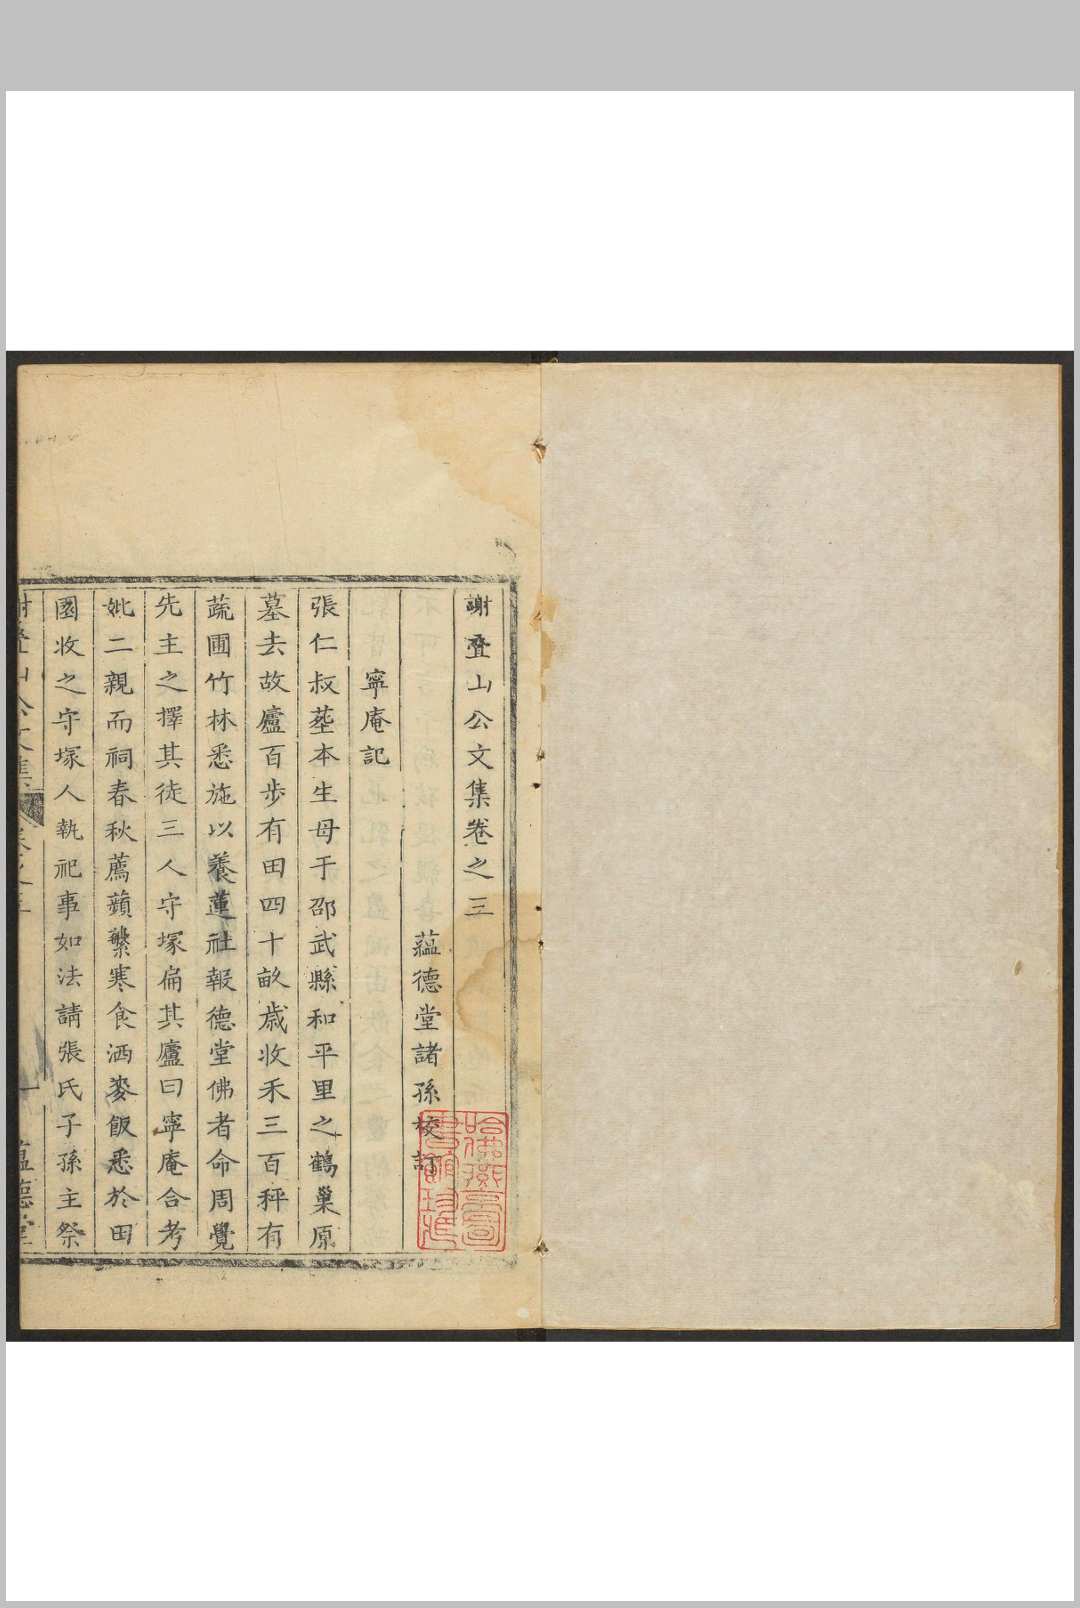 謝疊山公文集卷之三
蘊德堂諸孫校訂
寧庵記
張仁叔塟本生母于邵武縣和平里之鶴巢原
墓去故廬百步有田四十畝歳收禾三百秤有
蔬圃竹林悉施以養蓮社報德堂佛者命周覺
先主之擇其徒三人守塚扁其廬曰寧庵合考
妣二親而祠春秋薦蘋蘩寒食洒麥飯悉於田
園收之守塚人執祀事如法請張氏子孫主祭
謝疊山公文集
卷之三
一
蘊德堂
哈佛燕京圖書館珍藏